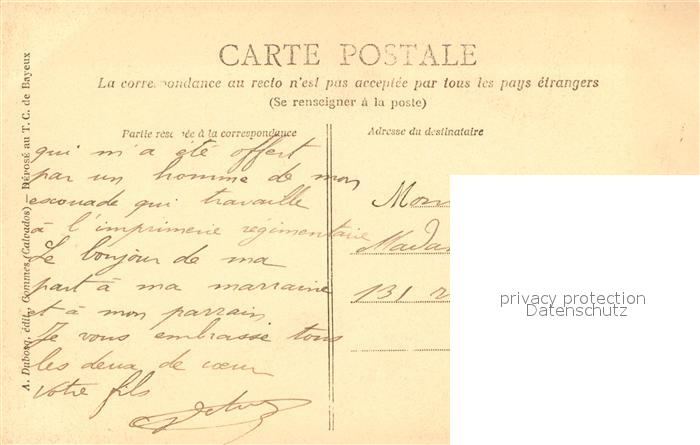 CARTE POSTALE
La correspondance au recto n'est pas acceptée par tous les pays étrangers
(Se renseigner à la poste)
Partie réservée à la correspondance
qui m'a été offert
par un homme de mon
escouade qui travaille
à l'imprimerie régimentaire
Le bonjour de ma
part à ma marraine
et à mon parrain
Je vous embrasse tous
les deux de cœur
Votre fils
Adresse du destinataire
Mon
Madam
131
privacy protection
Datenschutz
A. Dubosq, édit., Commes (Calvados) — Déposé au T. C. de Bayeux